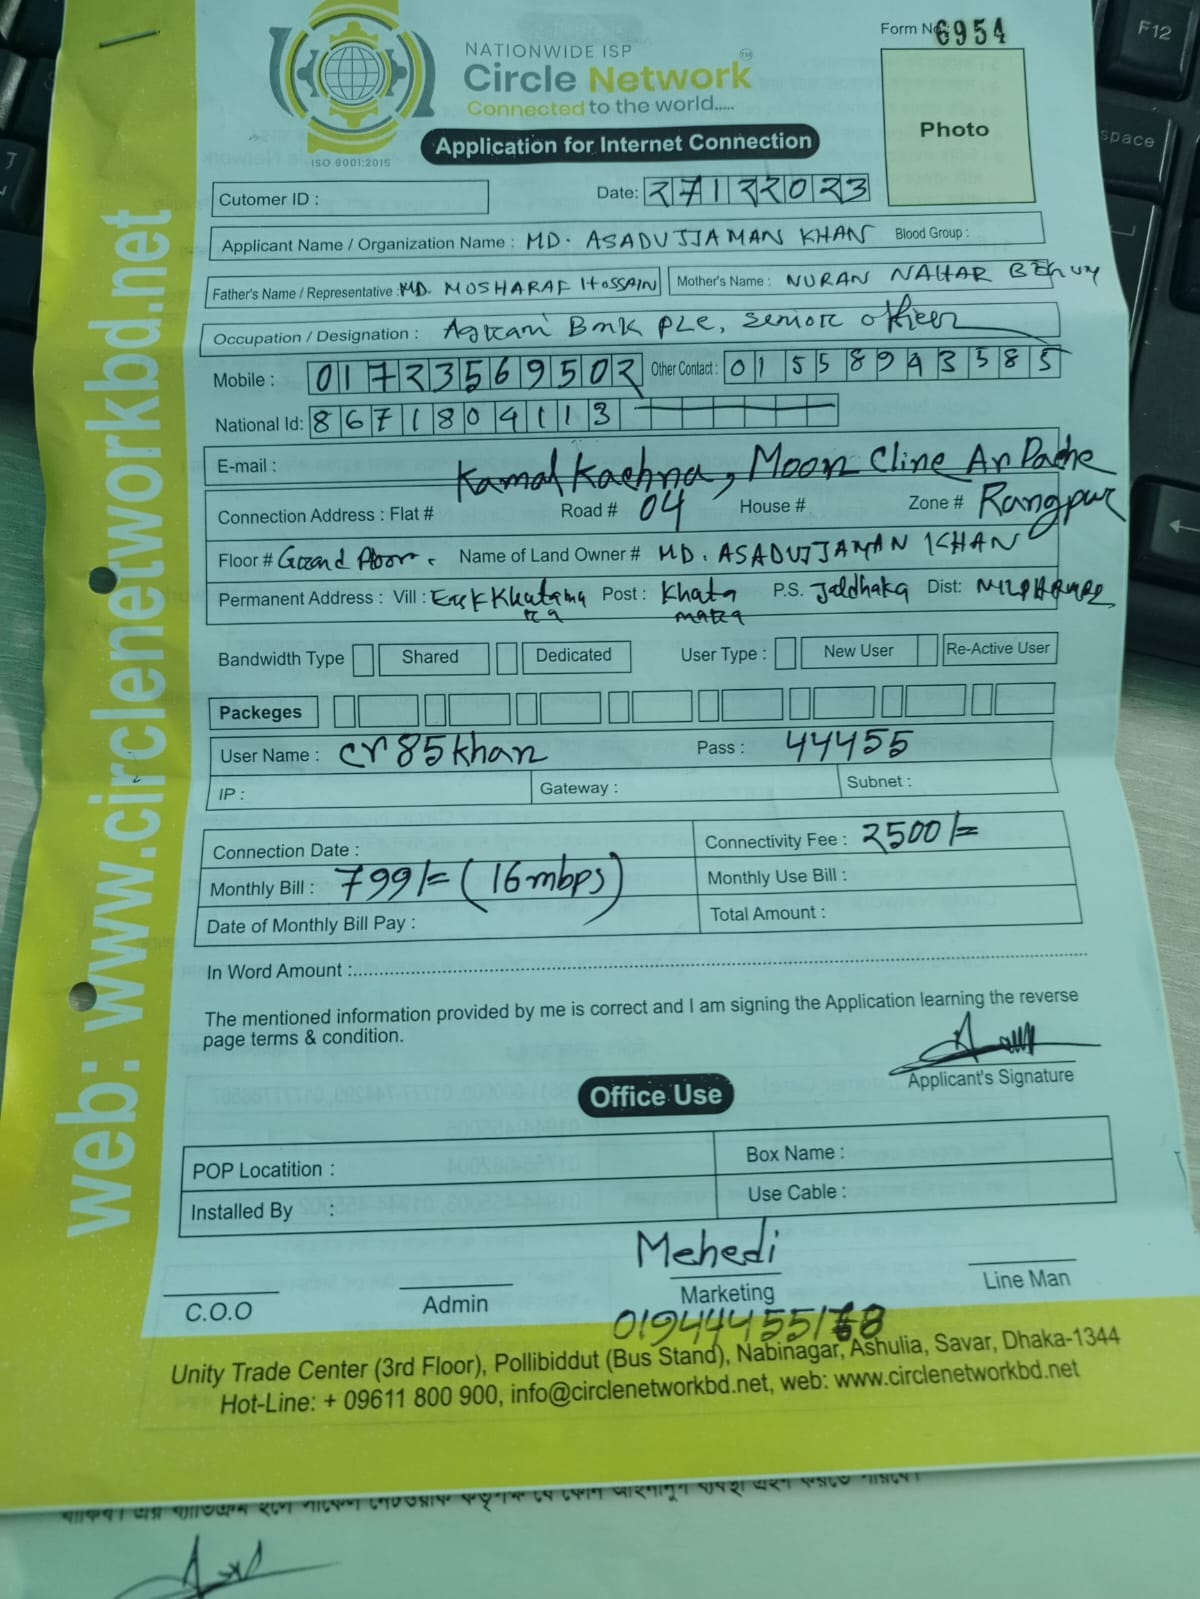 Form No 6954
NATIONWIDE ISP
Circle Network
Connected to the world.....
ISO 9001:2015
Application for Internet Connection
Photo
Cutomer ID :
Date: 27122023
Applicant Name / Organization Name : MD. ASADUJJAMAN KHAN Blood Group :
Father's Name / Representative : MD. MOSHARAF HOSSAIN Mother's Name : NURAN NAHAR BEGUM
Occupation / Designation : Agrani Bank PLC, Senior officer
Mobile : 01723569502 Other Contact : 01558943585
National Id: 8671804113
E-mail :
Kamal Kachna, Moon Cline Ar Pache
Connection Address : Flat # Road # 04 House # Zone # Rangpur
Floor # Ground floor. Name of Land Owner # MD. ASADUJJAMAN KHAN
Permanent Address : Vill : Post : Khata mara P.S. Jaldhaka Dist:
Bandwidth Type Shared Dedicated User Type : New User Re-Active User
Packeges
User Name : cr85khan Pass : 44455
IP : Gateway : Subnet :
Connection Date : Connectivity Fee : 2500/=
Monthly Bill : 799/= (16mbps) Monthly Use Bill :
Date of Monthly Bill Pay : Total Amount :
In Word Amount :
The mentioned information provided by me is correct and I am signing the Application learning the reverse
page terms & condition.
Applicant's Signature
Office Use
POP Locatition : Box Name :
Installed By : Use Cable :
Mehedi
C.O.O Admin Marketing Line Man
Unity Trade Center (3rd Floor), Pollibiddut (Bus Stand), Nabinagar, Ashulia, Savar, Dhaka-1344
Hot-Line: + 09611 800 900, info@circlenetworkbd.net, web: www.circlenetworkbd.net
web: www.circlenetworkbd.net
F12
space